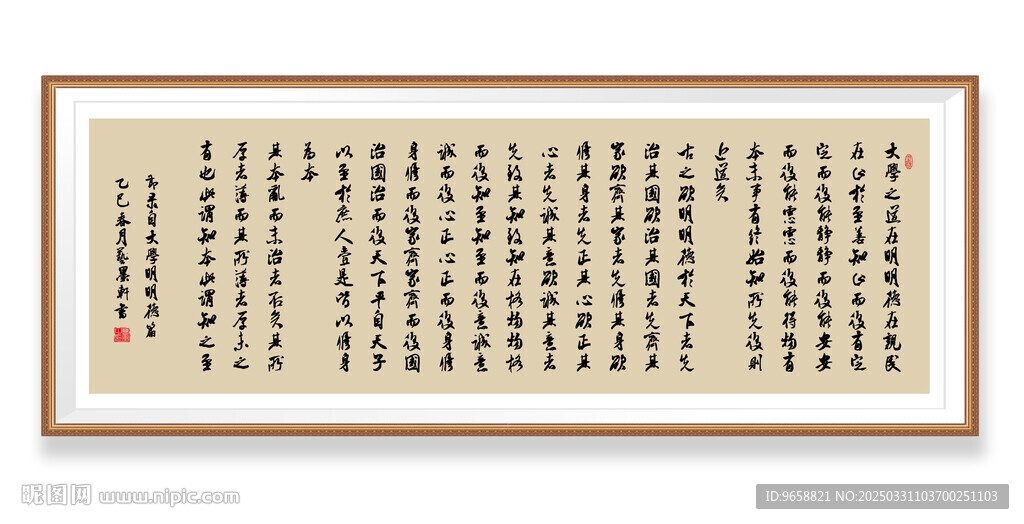 大學之道在明明德在親民
在止於至善知止而後有定
定而後能静静而後能安安
而後能慮慮而後能得物有
本末事有終始知所先後則
近道矣
古之欲明明德於天下者先
治其國欲治其國者先齊其
家欲齊其家者先修其身欲
修其身者先正其心欲正其
心者先誠其意欲誠其意者
先致其知致知在格物物格
而後知至知至而後意誠意
誠而後心正心正而後身修
身修而後家齊家齊而後國
治國治而後天下平自天子
以至於庶人壹是皆以修身
為本
其本亂而末治者否矣其所
厚者薄而其所薄者厚未之
有也此謂知本此謂知之至
节录自大學明明德篇
乙巳春月藝墨軒書
昵图网 www.nipic.com
ID:9658821 NO:20250331103700251103